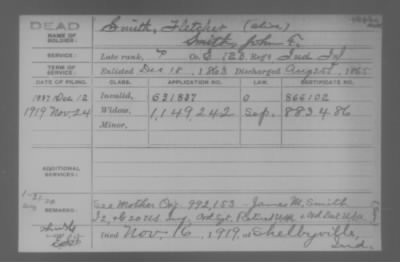 DEAD
NAME OF SOLDIER: Smith, Fletcher (alias)
Smith, John F.
SERVICE: Late rank, P Co. C 123 Reg't Ind Inf
TERM OF SERVICE: Enlisted Dec 18, 1863 Discharged Aug 25, 1865
DATE OF FILING. CLASS. APPLICATION NO. LAW. CERTIFICATE NO.
1887 Dec 12 Invalid, 631837 866102
1919 Nov. 24 Widow, 1,149,242 883486
Minor,
ADDITIONAL SERVICES:
REMARKS: See Mother Orig. 992,153 - James M. Smith
Died Nov. 16, 1919, at Shelbyville,
Ind.